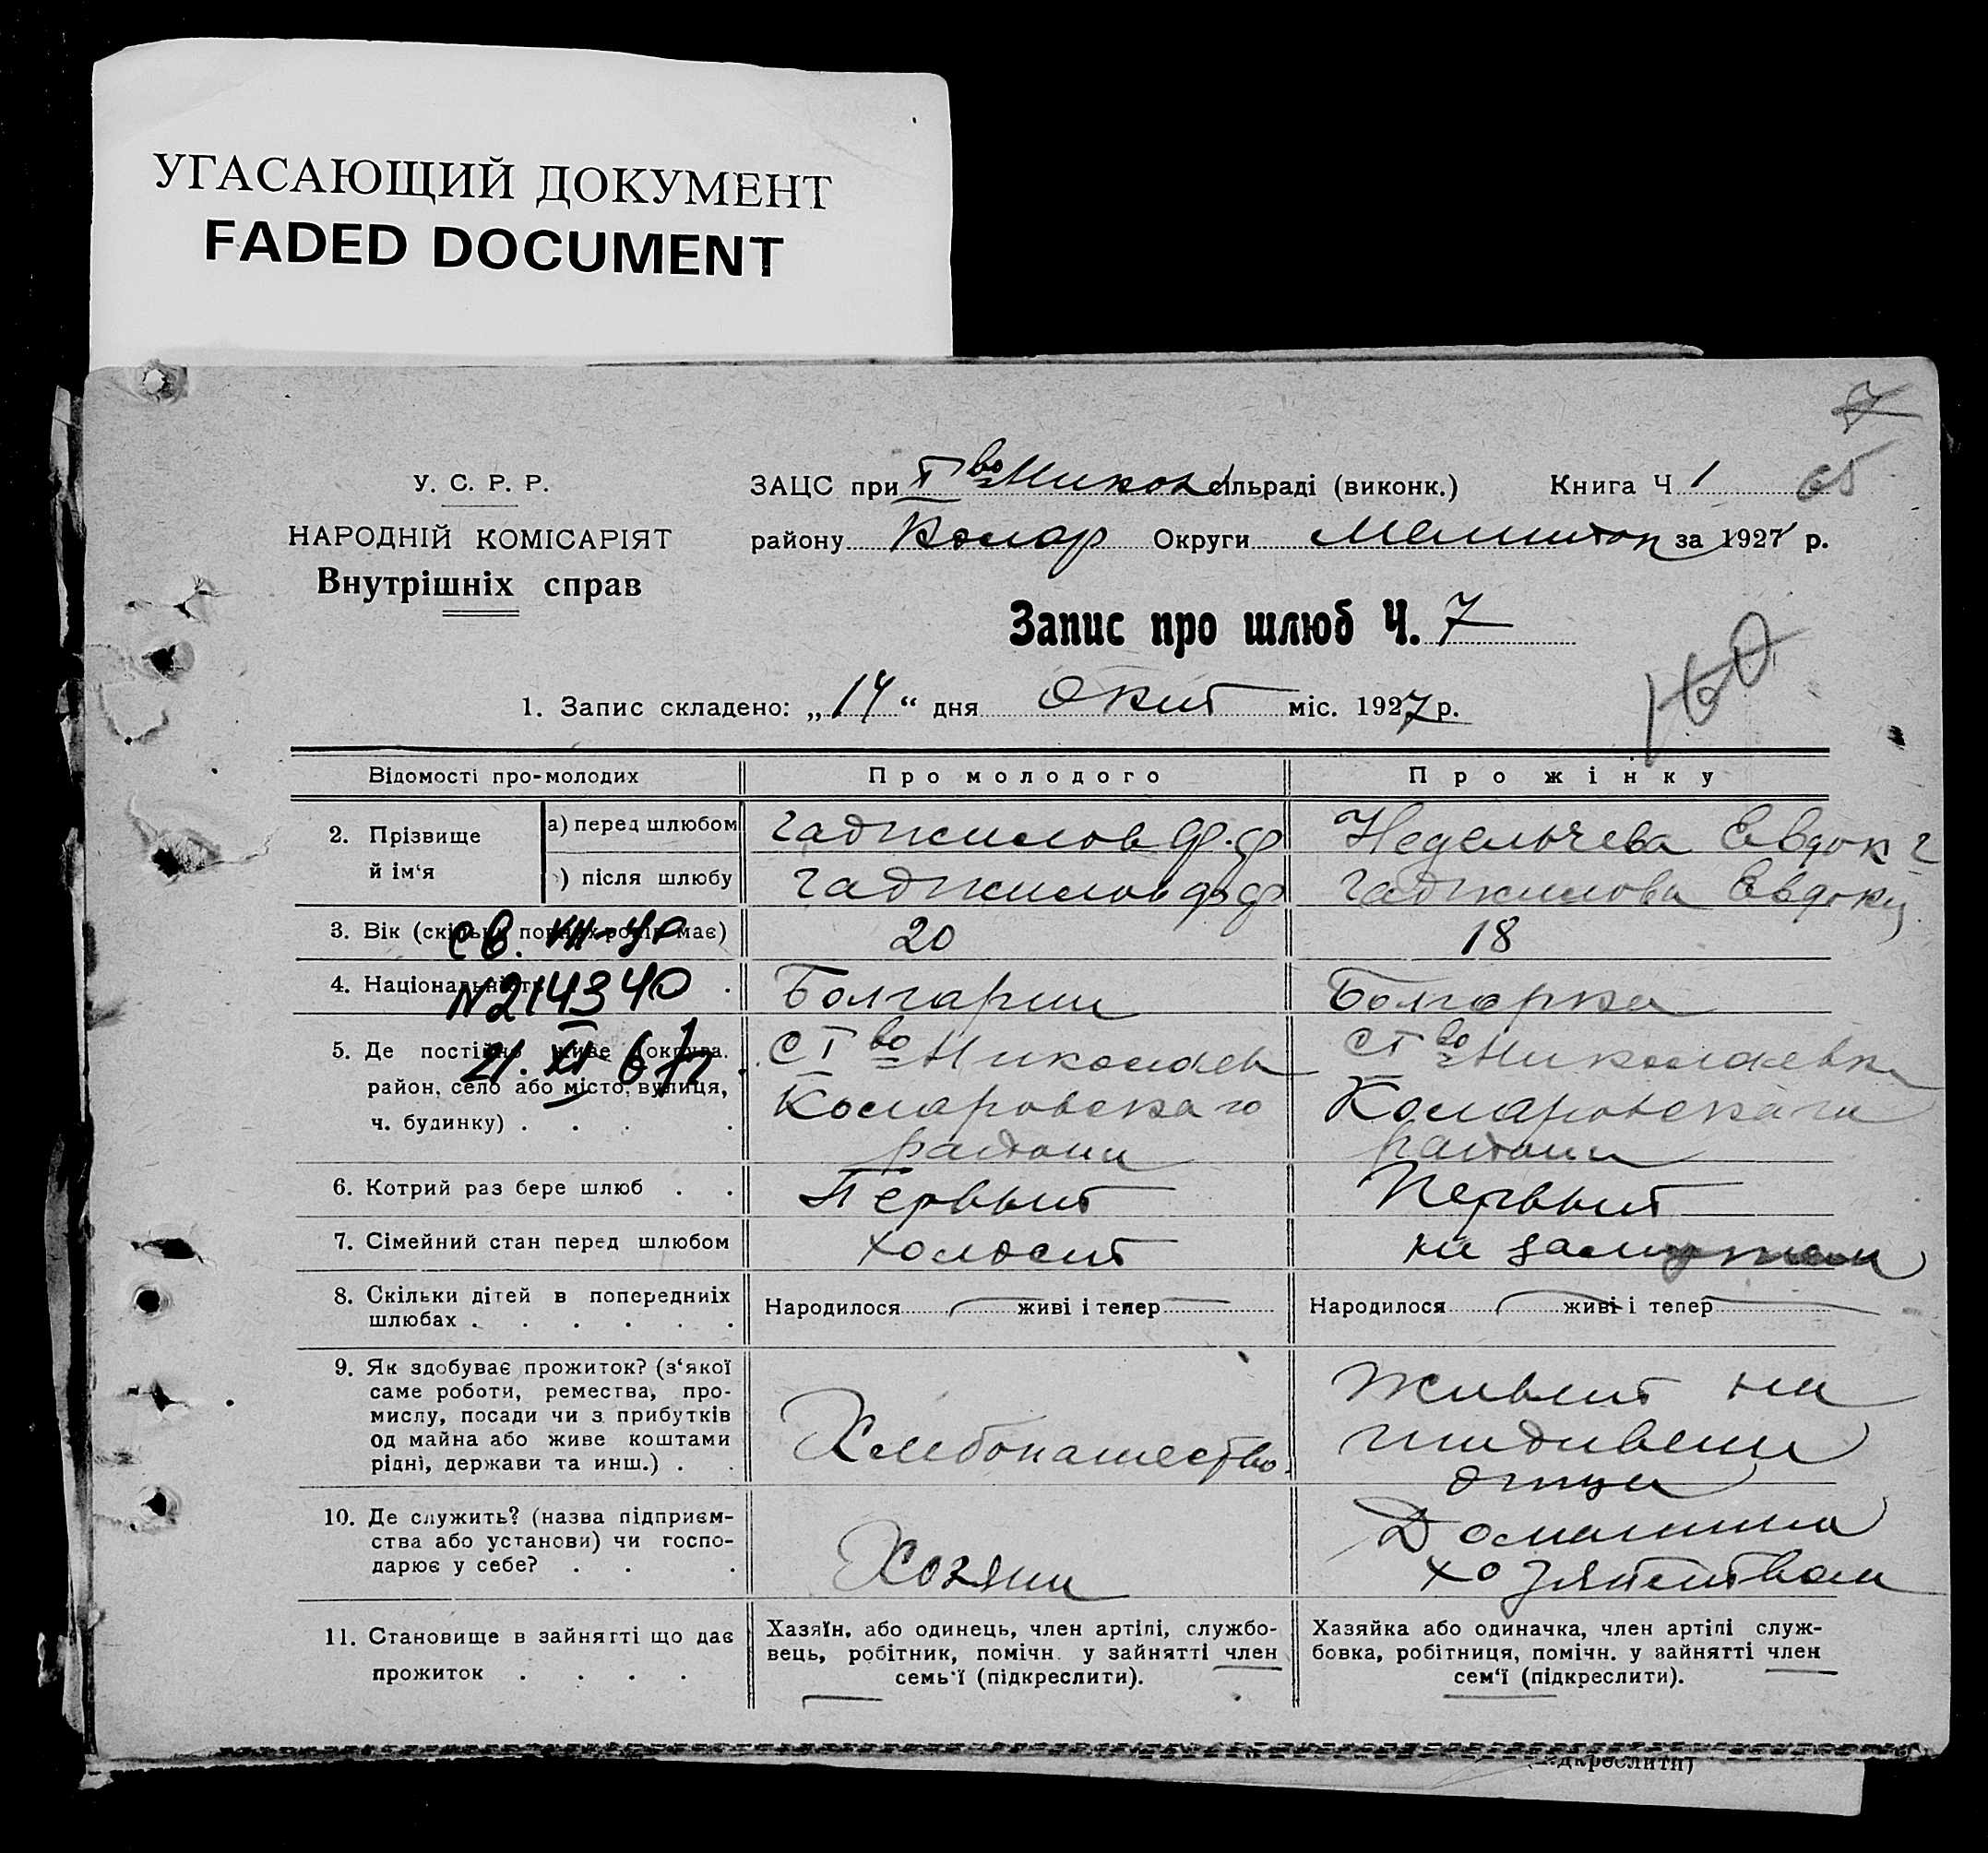 УГАСАЮЩИЙ ДОКУМЕНТ
FADED DOCUMENT
7
65
У. С. Р. Р.
НАРОДНІЙ КОМІСАРІЯТ
Внутрішніх справ
ЗАЦС при I во Никол сільраді (виконк.) Книга Ч 1
району Комар Округи за 1927 р.
Запис про шлюб Ч. 7
160
1. Запис складено: „14“ дня Окт міс. 1927 р.
Відомості про молодих
Про молодого
Про жінку
2. Прізвище й ім‘я
а) перед шлюбом
Гаджилов Ф.Ф
Недельчева Евдок Г
) після шлюбу
Гаджилов Ф Ф
Гаджилова Евдоки
3. Вік (скільки повних років має)
20
18
св. VII-УР
N214340
21. XI 67г.
4. Національність .
Болгарин
Болгарка
5. Де постійно живе (округа, район, село або місто, вулиця, ч. будинку) . . . .
С I во Николаев
Комаровскаго
района
С I во Николаевка
Комаровскаго
района
6. Котрий раз бере шлюб . .
Первый
Первый
7. Сімейний стан перед шлюбом
холост
не замужем
8. Скільки дітей в попередніх
шлюбах . . . . . .
Народилося живі і тепер
Народилося живі і тепер
9. Як здобуває прожиток? (з‘якої
саме роботи, ремества, про-
мислу, посади чи з прибутків
од майна або живе коштами
рідні, держави та инш.) . .
Хлебопашество
Живет на
иждивении
отца
10. Де служить? (назва підприєм-
ства або установи) чи госпо-
дарює у себе? . . .
Хозяин
Домашним
хозяйством
11. Становище в зайнятті що дає
прожиток . . . .
Хазяїн, або одинець, член артілі, службо-
вець, робітник, помічн. у зайнятті член
семь‘ї (підкреслити).
Хазяйка або одиначка, член артілі служ-
бовка, робітниця, помічн. у зайнятті член
сем‘ї (підкреслити).
(підкреслити)